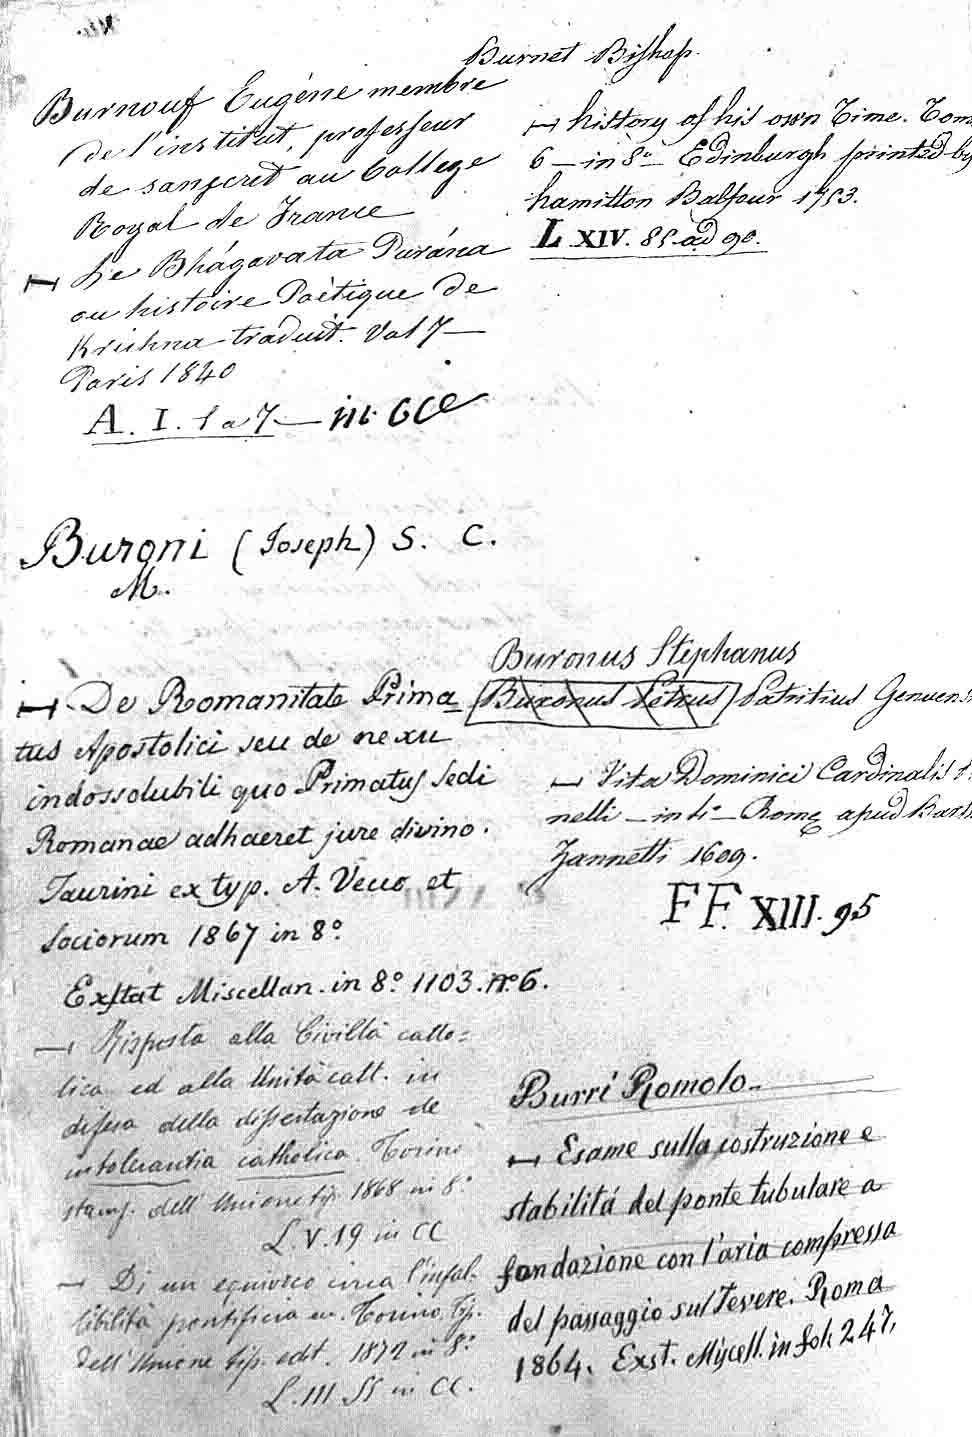 Burnouf Eugéne membre
de l'institut, professeur
de sanscrit au College
Royal de France
Le Bhágavata Purána
ou histoire Poètique de
Krishna traduit. Vol 7 —
Paris 1840
A. I. 1 a 7 —
Buroni (Joseph) S. C.
M.
— De Romanitate Prima-
tus Apostolici seu de nexu
indossolubili quo Primatus Sedi
Romanae adhaeret jure divino.
Taurini ex typ. A. Vecco et
sociorum 1867 in 8º
Exstat Miscellan. in 8º 1103. nº 6.
— Risposta alla Civiltà catto=
lica ed alla Unità catt. in
difesa della dissertazione de
intolerantia catholica. Torino
stamp. dell' Unione tip. 1868 in 8º
L. V. 19 in CC
— Di un equivoco circa l'infal-
libilità pontificia Torino, tip.
dell' Unione tip. edit. 1872 in 8º
L. III. 55 in CC.
Burnet Bishop.
— history of his own Time. Tom
6 — in 8º — Edinburgh printed by
hamilton Balfour 1753.
L XIV. 85 ad 90.
Buronus Stephanus
Buronus Petrus Patritius Genuens
— Vita Dominici Cardinalis
nelli — in 4º — Rome apud Barth
Zannetti 1609.
FF. XIII. 95
Burri Romolo —
— Esame sulla costruzione e
stabilitá del ponte tubulare a
fondazione con l'aria compressa
del passaggio sul Tevere. Roma
1864. Exst. Miscell. in fol. 247.